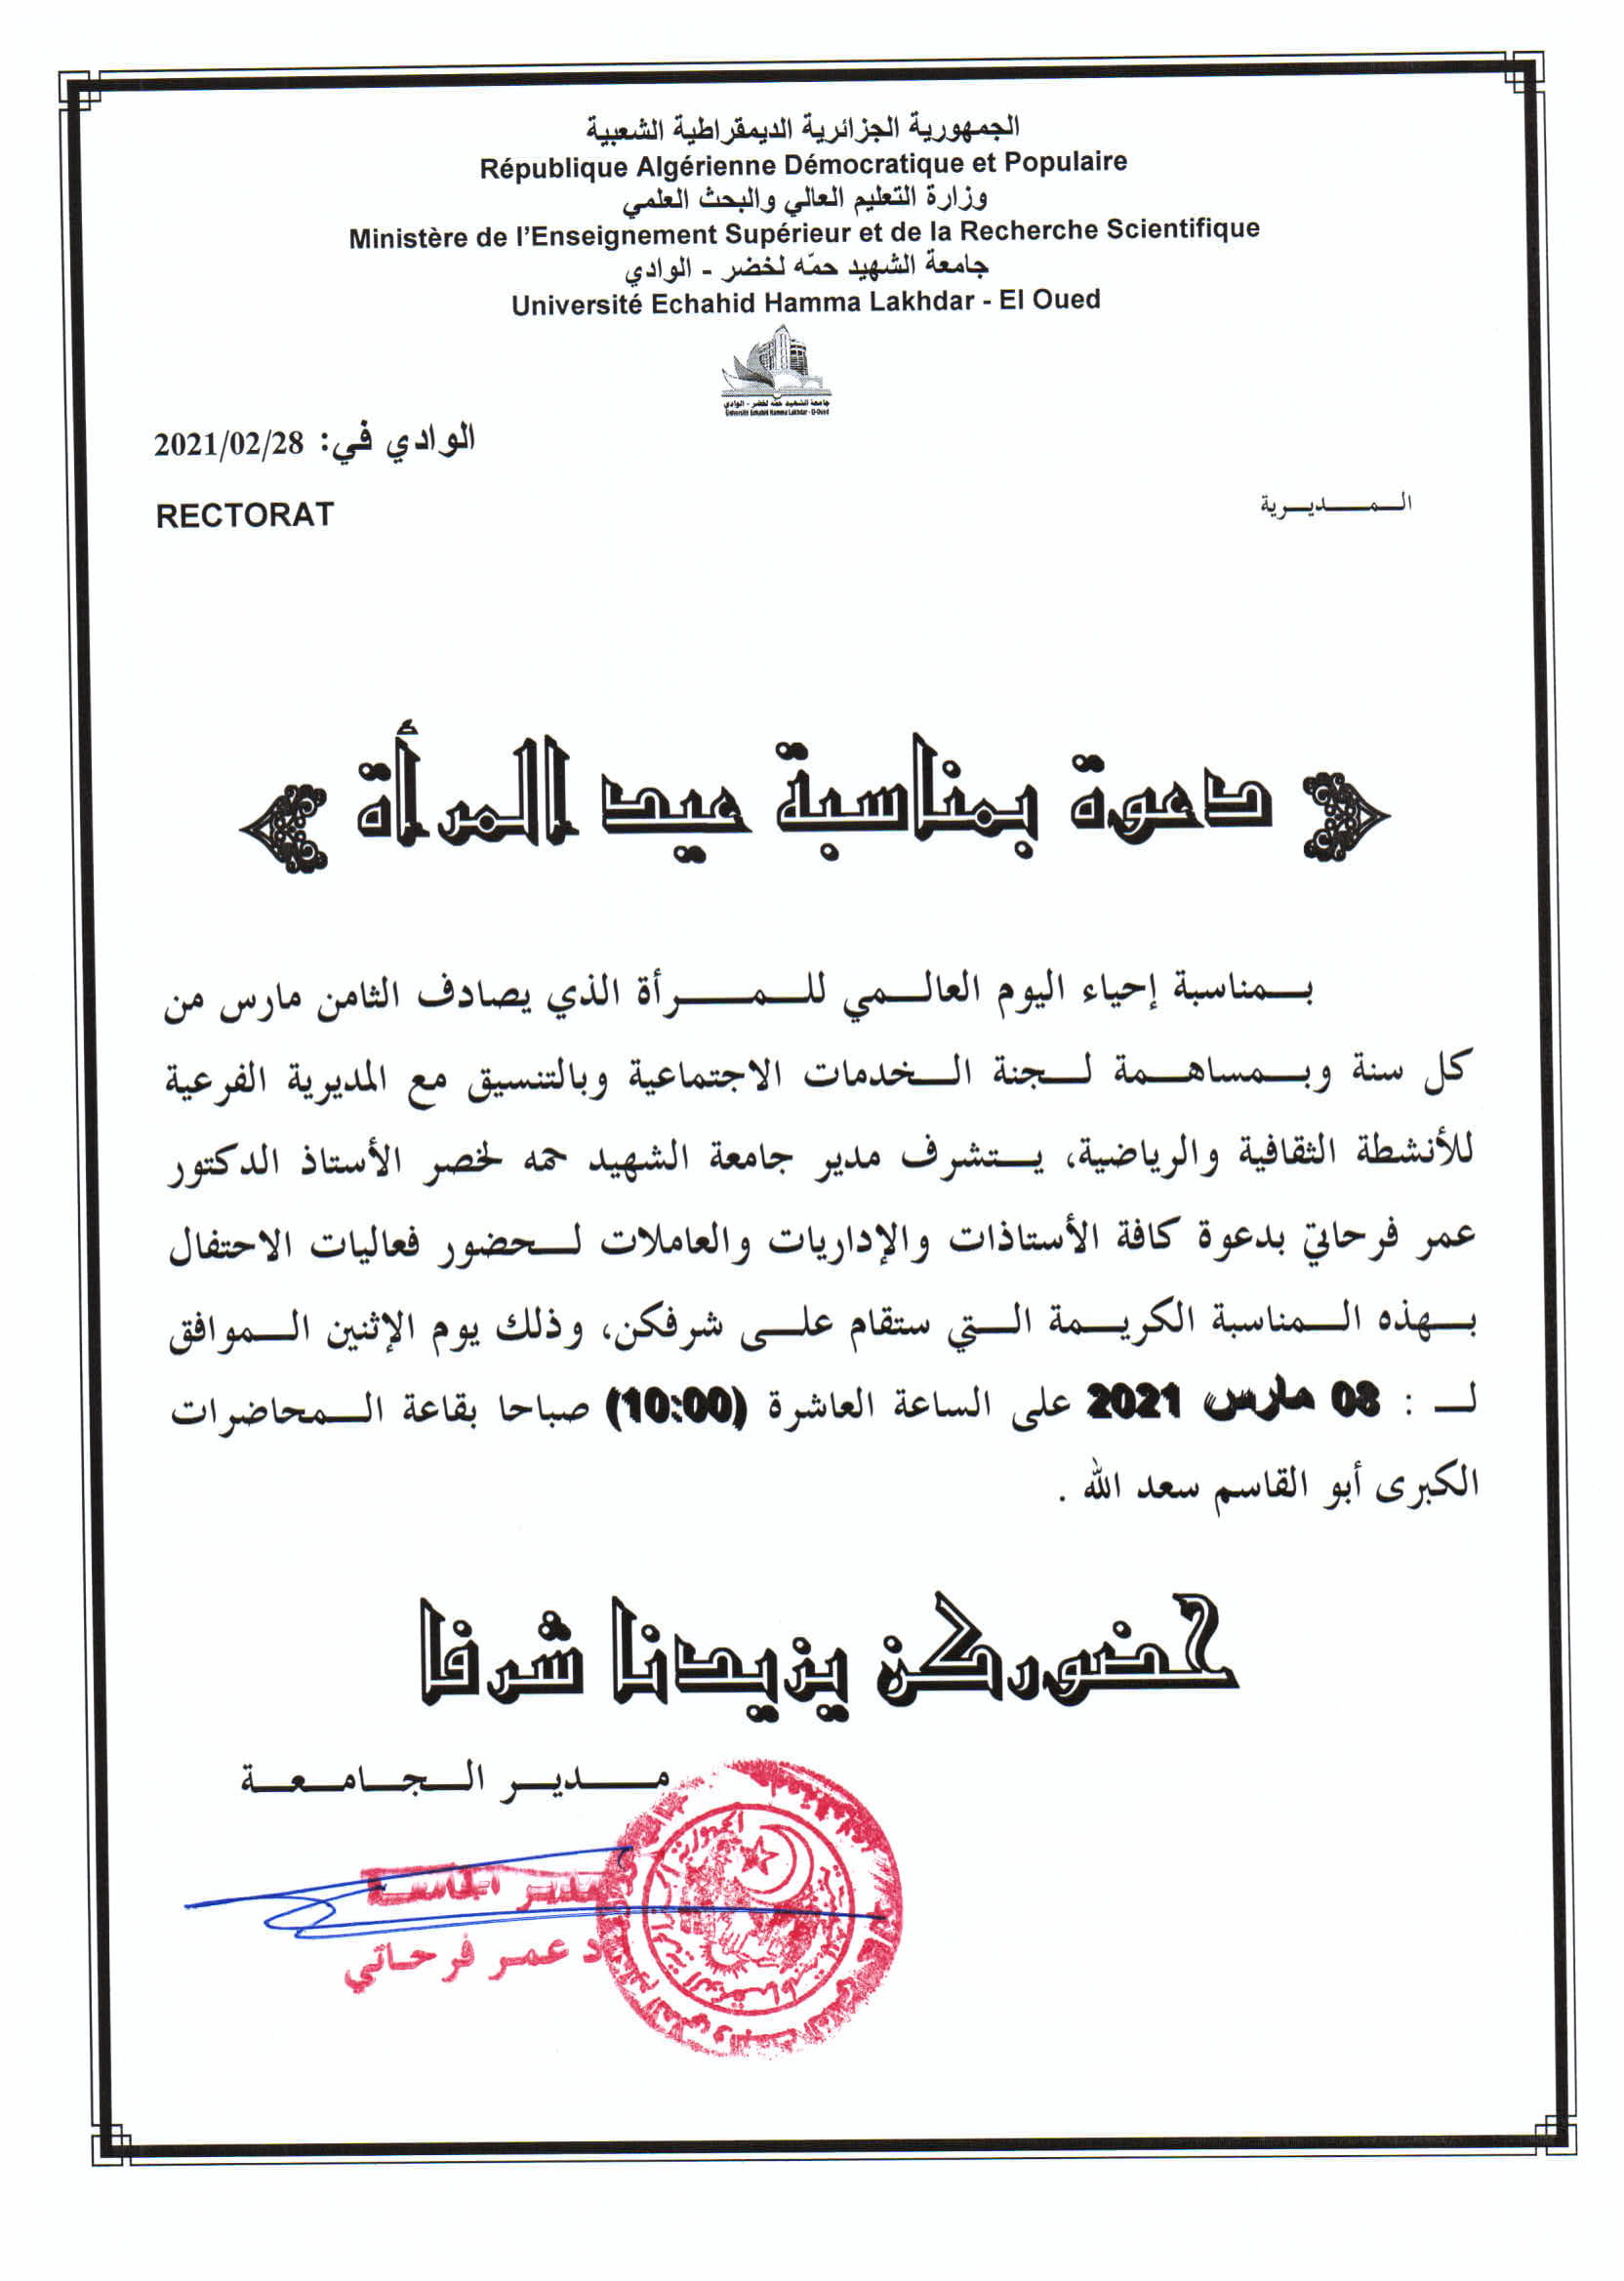 الجمهورية الجزائرية الديمقراطية الشعبية
République Algérienne Démocratique et Populaire
وزارة التعليم العالي والبحث العلمي
Ministère de l'Enseignement Supérieur et de la Recherche Scientifique
جامعة الشهيد حمّه لخضر - الوادي
Université Echahid Hamma Lakhdar - El Oued
جامعة الشهيد حمّه لخضر - الوادي
Université Echahid Hamma Lakhdar - El-Oued
الوادي في: 2021/02/28
المديرية
RECTORAT
دعوة بمناسبة عيد المرأة
بمناسبة إحياء اليوم العالمي للمرأة الذي يصادف الثامن مارس من
كل سنة وبمساهمة لجنة الخدمات الاجتماعية وبالتنسيق مع المديرية الفرعية
للأنشطة الثقافية والرياضية، يتشرف مدير جامعة الشهيد حمه لخصر الأستاذ الدكتور
عمر فرحاتي بدعوة كافة الأستاذات والإداريات والعاملات لحضور فعاليات الاحتفال
بهذه المناسبة الكريمة التي ستقام على شرفكن، وذلك يوم الإثنين الموافق
لـ : 08 مارس 2021 على الساعة العاشرة (10:00) صباحا بقاعة المحاضرات
الكبرى أبو القاسم سعد الله .
حضوركن يزيدنا شرفا
مدير الجامعة
مدير الجامعة
أ.د عمر فرحاتي